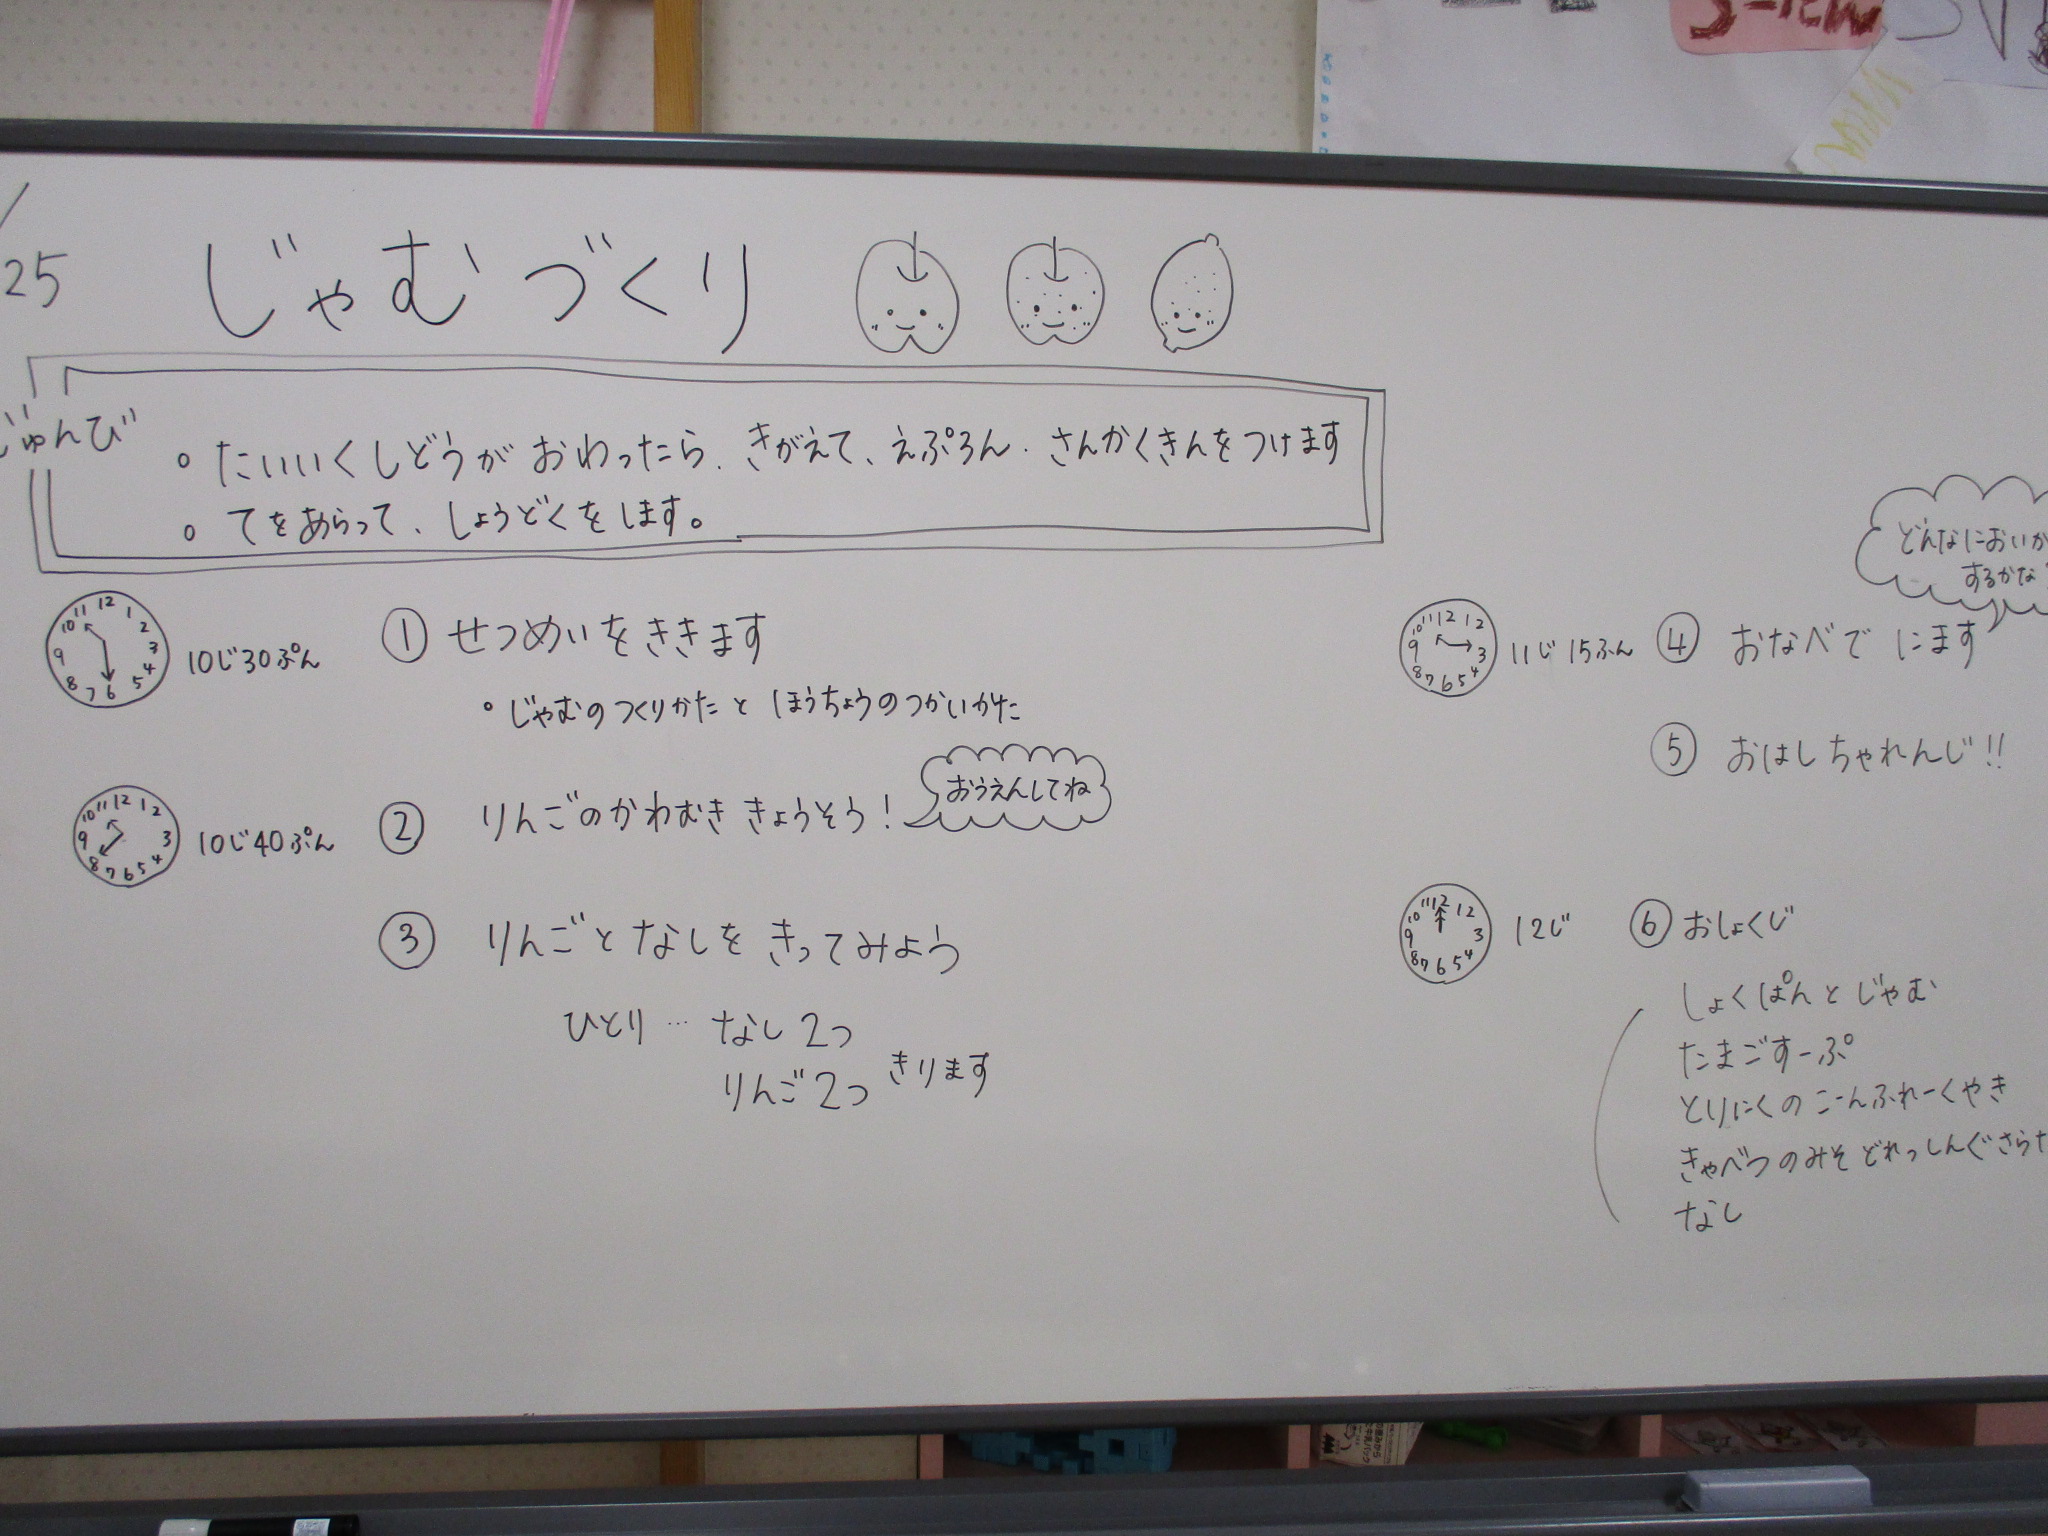 /25
じゃむづくり
じゅんび
○ たいいくしどうが おわったら、きがえて、えぷろん・さんかくきんをつけます
○ てをあらって、しょうどくをします。
12 1 2 3 4 5 6 7 8 9 10 11
10じ30ぷん
① せつめいをききます
○じゃむのつくりかたと ほうちょうのつかいかた
12 1 2 3 4 5 6 7 8 9 10 11
10じ40ぷん
② りんごのかわむき きょうそう!
おうえんしてね
③ りんごと なしを きってみよう
ひとり… なし 2つ
りんご 2つ きります
どんなにおいが
するかな?
12 1 2 3 4 5 6 7 8 9 10 11
11じ 15ふん
④ おなべで にます
⑤ おはしちゃれんじ!!
12 1 2 3 4 5 6 7 8 9 10 11
12じ
⑥ おしょくじ
しょくぱんと じゃむ
たまごすーぷ
とりにくの こーんふれーくやき
きゃべつのみそ どれっしんぐさらだ
なし